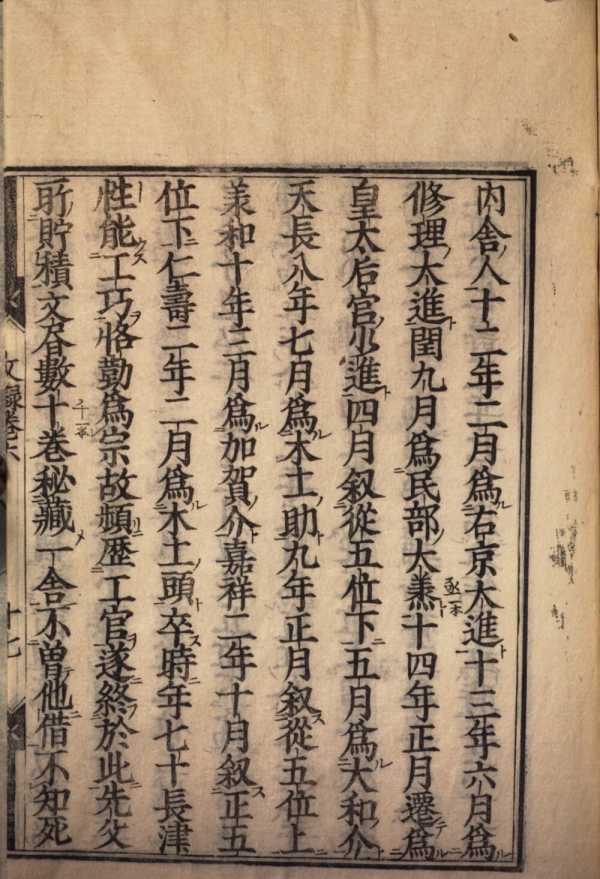 内舎人十二年二月爲右京大進十三年六月爲
修理大進閏九月爲民部大烝十四年正月遷爲
皇太后宮少進四月叙從五位下五月爲大和介
天長八年七月爲木工助九年正月叙從五位上
羕和十年三月爲加賀介嘉祥二年十月叙正五
位下仁壽二年二月爲木土頭卒時年七十長津
性能工巧恪勤爲宗故頻歴工官遂終於此先父
所貯積文書數十巻秘藏一舎不曽他借不知死
文録巻六
十七